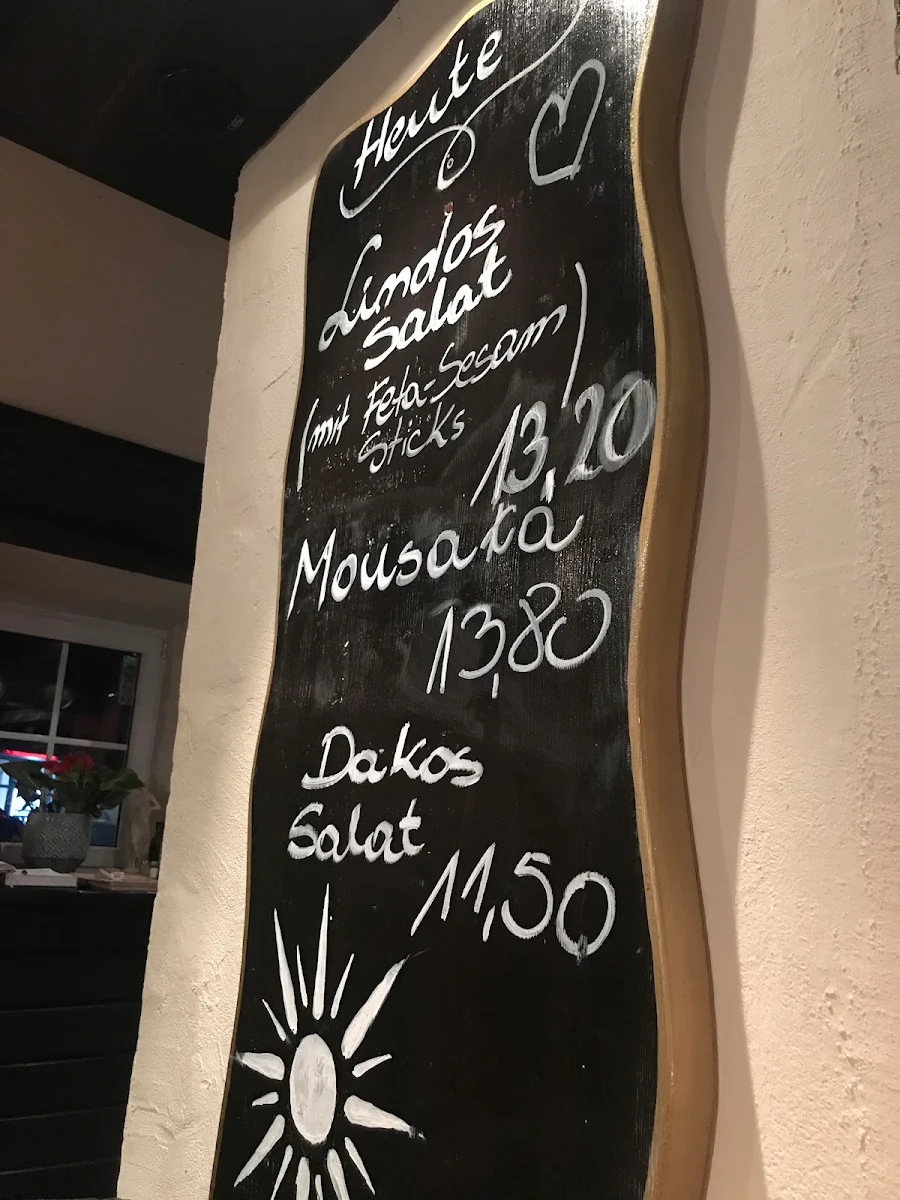 Heute
Lindos
Salat
(mit Feta-Sesam)
Sticks
13,20
Mousaka
13,80
Dakos
Salat
11,50